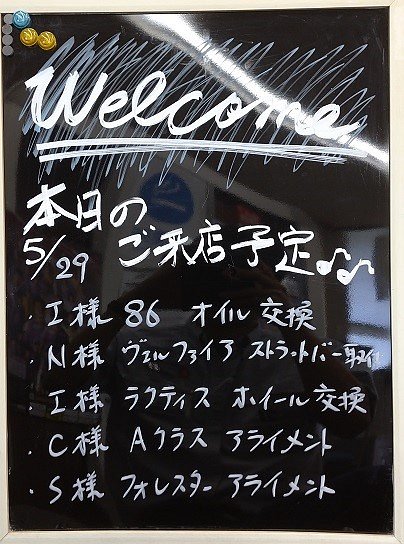 Welcome
本日の
5/29 ご来店予定♪♪
・I様 86 オイル交換
・N様 ヴェルファイア ストラットバー取付
・I様 ラクティス ホイール交換
・C様 Aクラス アライメント
・S様 フォレスター アライメント